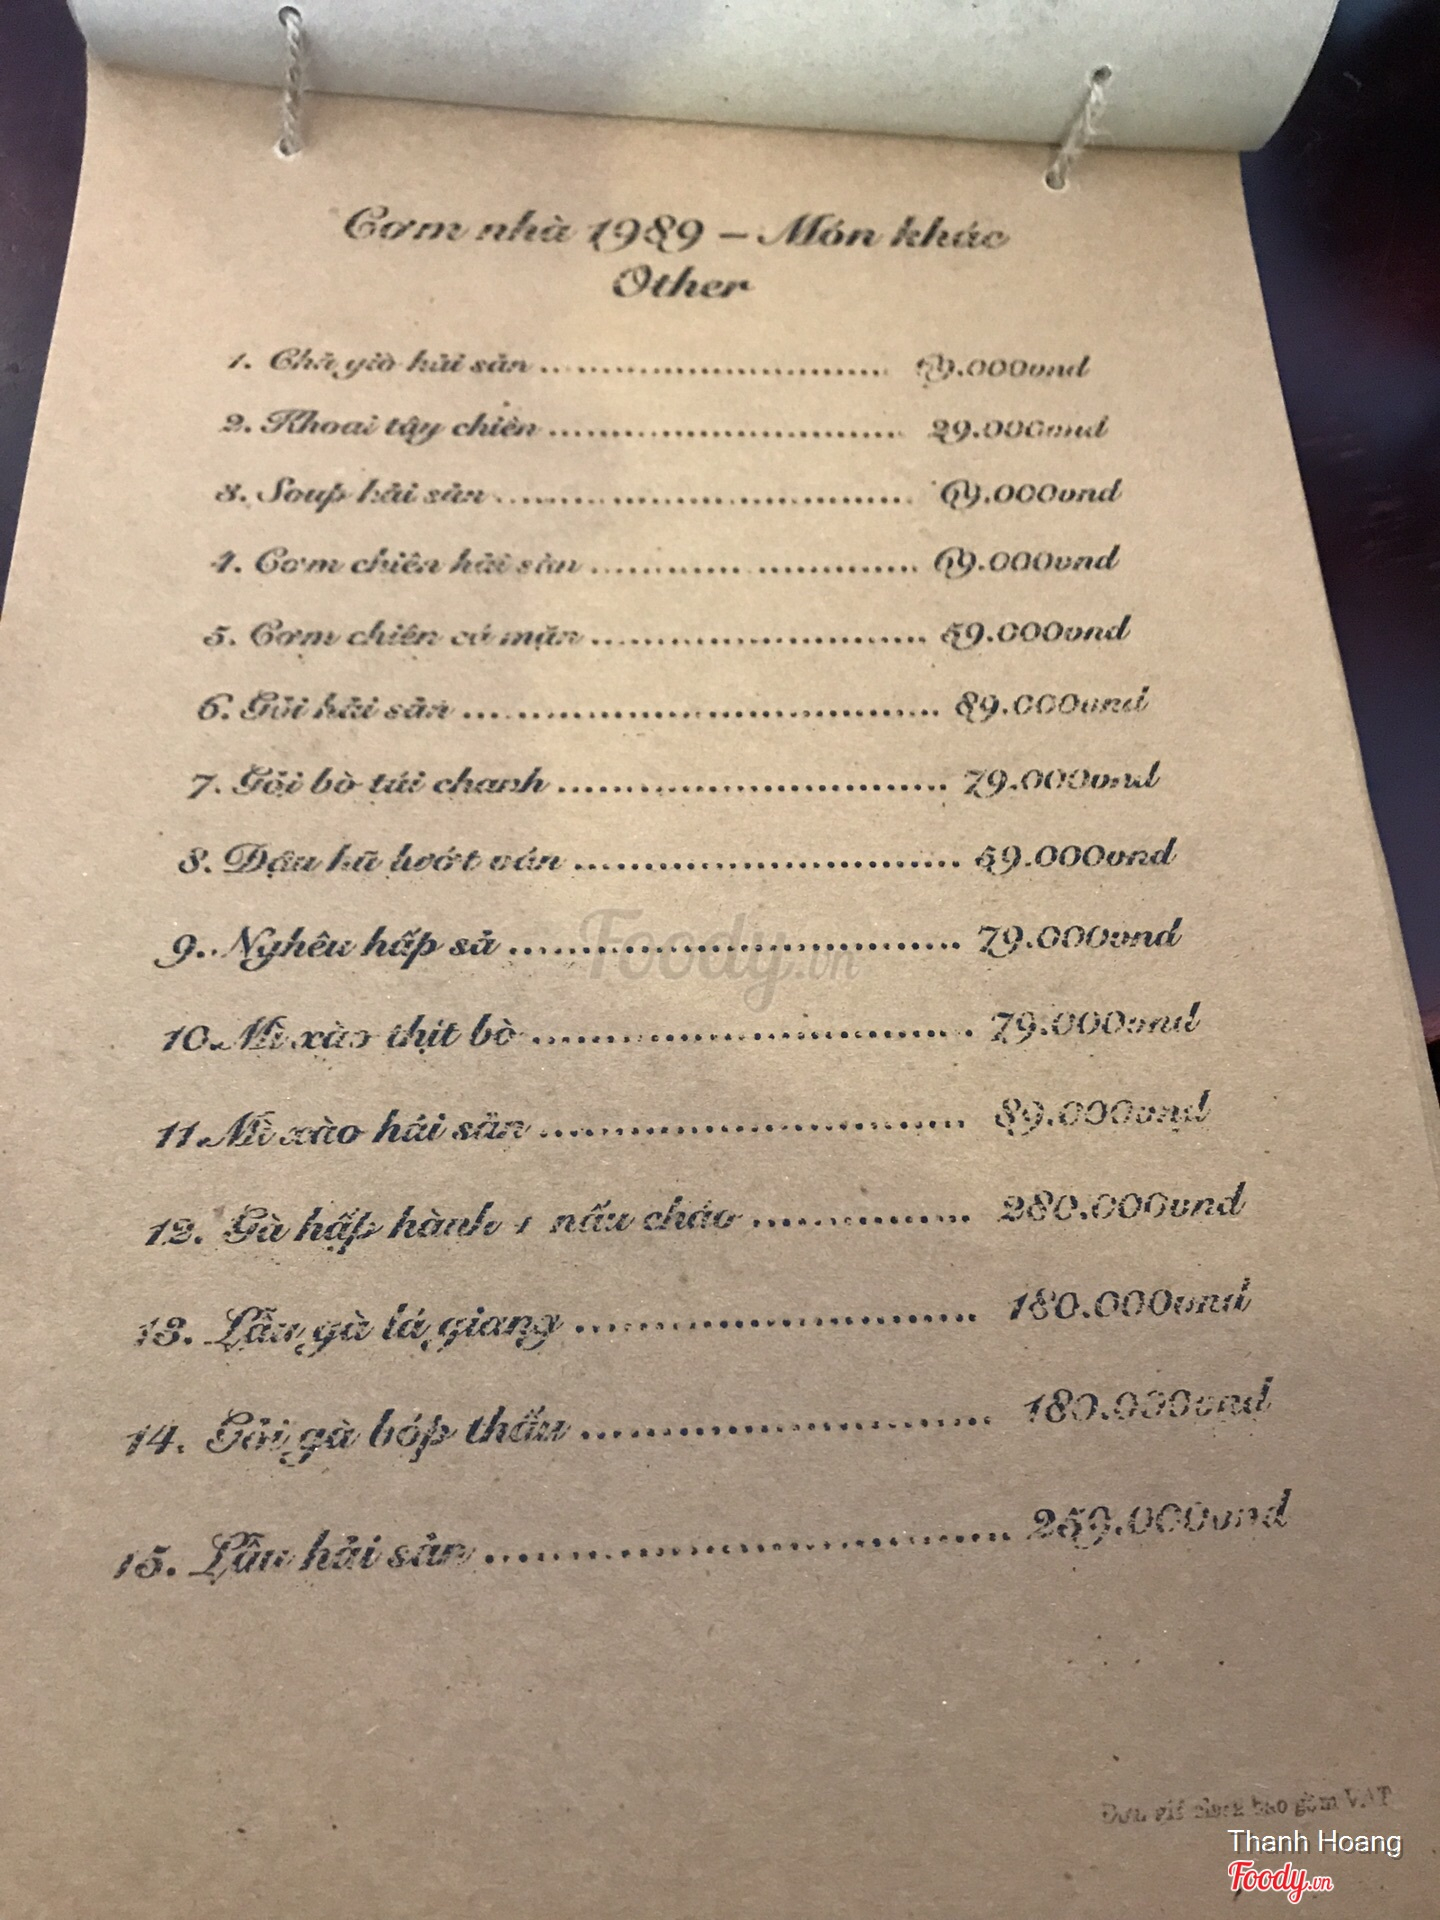 Cơm nhà 1989 – Món khác
Other
1. Chả giò hải sản ................................ 69.000vnd
2. Khoai tây chiên ................................ 29.000vnd
3. Soup hải sản ................................ 69.000vnd
4. Cơm chiên hải sản ................................ 69.000vnd
5. Cơm chiên cá mặn ................................ 59.000vnd
6. Gỏi hải sản ................................ 89.000vnd
7. Gỏi bò tái chanh ................................ 79.000vnd
8. Đậu hũ lướt ván ................................ 59.000vnd
9. Nghêu hấp sả ................................ 79.000vnd
Foody.vn
10. Mì xào thịt bò ................................ 79.000vnd
11. Mì xào hải sản ................................ 89.000vnd
12. Gà hấp hành + nấu cháo ................ 280.000vnd
13. Lẩu gà lá giang ............................ 180.000vnd
14. Gỏi gà bóp thấu ............................ 180.000vnd
15. Lẩu hải sản ................................ 259.000vnd
Đơn giá chưa bao gồm VAT
Thanh Hoang
Foody.vn